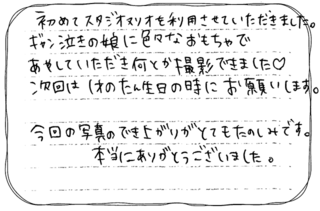 初めてスタジオマリオを利用させていただきました。
ギャン泣きの娘に色々なおもちゃで
あやしていただき何とか撮影できました♡
次回は1才のたん生日の時にお願いします。
今回の写真のでき上がりがとてもたのしみです。
本当にありがとうございました。